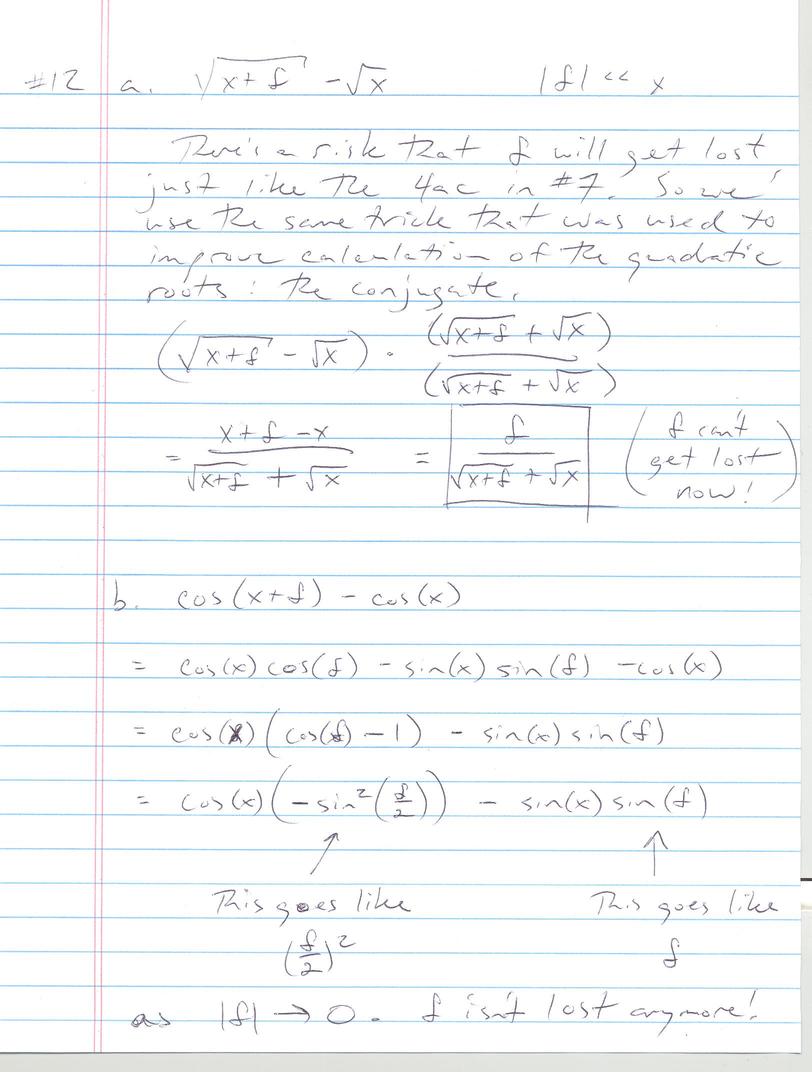 #12 a. √(x+f) - √x |f| << x
There's a risk that f will get lost
just like the 4ac in #7. So we'
use the same trick that was used to
improve calculation of the quadatic
roots: the conjugate.
(√(x+f) - √x) · (√(x+f) + √x)/(√(x+f) + √x)
= (x+f-x)/(√(x+f) + √x) = f/(√(x+f) + √x) (f can't get lost now!)
b. cos(x+f) - cos(x)
= cos(x)cos(f) - sin(x)sin(f) - cos(x)
= cos(x)(cos(f) - 1) - sin(x)sin(f)
= cos(x)(-sin²(f/2)) - sin(x)sin(f)
↗ ↑
This goes like This goes like
(f/2)² f
as |f| → 0. f isn't lost anymore!